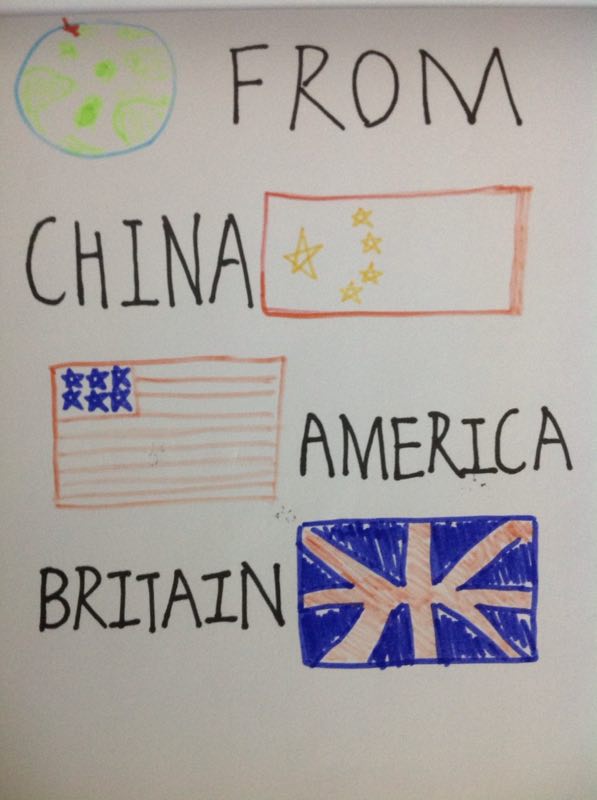 FROM
CHINA
AMERICA
BRITAIN